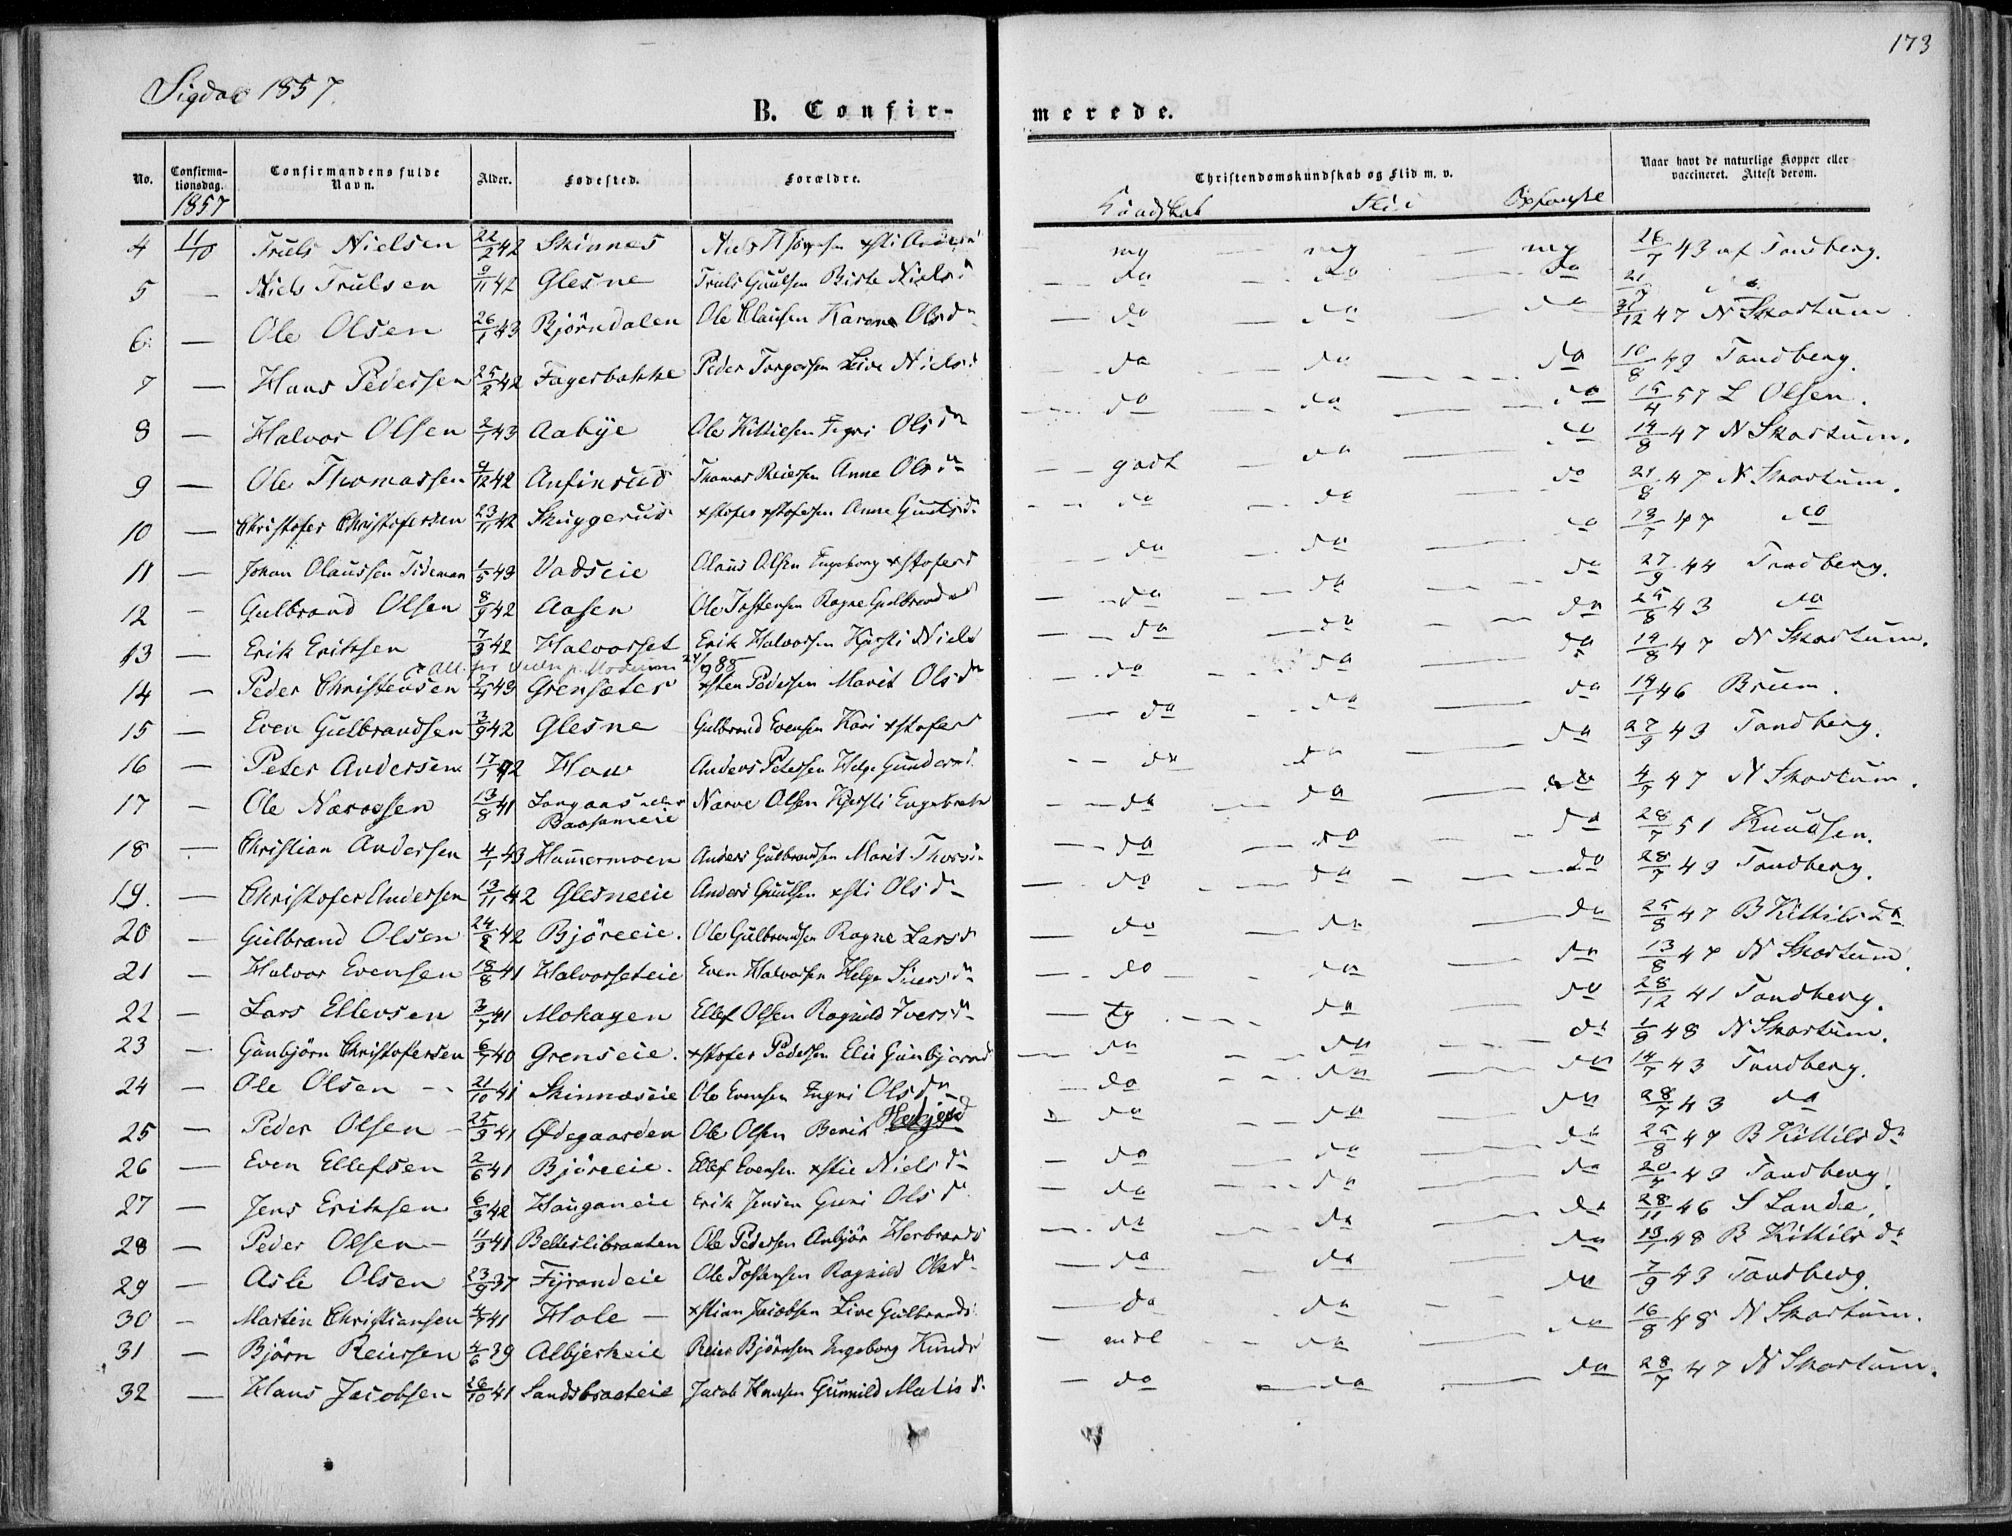 173
Sigdal 1857.
B. Confir- merede.
No. Confirma-tionsdag. Confirmandens fulde Navn. Alder. Fødested. Forældre. Christendomskundskab og Flid m. v. Naar havt de naturlige Kopper eller vaccineret. Attest derom.
1857 Kundskab Flid Opførsel
4 11/10 Truls Nielsen 22/2 42 Skinnes my my my 26/7 43 af Tandberg.
5 — Niels Trulsen 9/11 42 Glesne Truls Guulsen Birte Nielsd do do do 21/7
6 — Ole Olsen 26/1 43 Bjørndalen Ole Clausen Karen Olsdn do do do 3/12 47 N Skartum
7 — Hans Pedersen 25/2 42 Fagerbakke Peder Torgersen Live Nielsd do do do 10/8 49 Tandberg.
8 — Halvor Olsen 2/1 43 Aabye Ole Kittilsen Ingri Olsdn do do do 15/4 57 L Olsen.
9 — Ole Thomassen 9/12 42 Anfinrud Thomas Reiersen Anne Olsdn godt do do 14/8 47 N Skartum.
10 — Christofer Christofersen 23/11 42 Skuggerud xstofer xstofersen Anne Gulsd. do do do 21/8 47 N Skartum.
11 — Johan Olaussen Tideman 1/5 43 Vadseie Olaus Olsen Ingeborg xstofersd do do do 13/7 47 do
12 — Gulbrand Olsen 8/9 42 Aasen Ole Tostensen Ragne Gulbrandsd do do do 27/9 44 Tandberg.
13 — Erik Eriksen 7/3 42 Halvorset Erik Halvorsen Kjersti Nielsd do do do 25/8 43 do
14 — Peder Christensen 7/4 43 Grensæter xsten Pedersen Marit Olsdn do do do 14/8 47 N Skartum.
15 — Even Gulbrandsen 3/9 42 Glesne Gulbrand Evensen Kari xstofersd do do do 14/1 46 Bruun.
16 — Peter Andersen 17/1 42 Hou Anders Petersen Helge Gundersd. do do do 27/9 43 Tandberg.
17 — Ole Narvesen 13/8 41 Langaas eller Baasameie Narve Olsen Kjersti Engebretsd do do do 4/7 47 N Skartum.
18 — Christian Andersen 4/1 43 Hammermoen Anders Gulbrandsen Marit Thorsdn do do do 28/7 51 Knudsen.
19. — Christofer Andersen 13/11 42 Glesneeie Anders Guulsen xsti Olsdn do do do 28/7 49 Tandberg.
20 — Gulbrand Olsen 24/8 42 Bjøreeie. Ole Gulbrandsen Ragne Larsd do do do 25/8 47 B Kittilsdn
21 — Halvor Evensen 18/8 41 Halvorseteie Even Halvorsen Helge Siversdn do do do 13/8 47 N Skartum.
22 — Lars Ellevsen 3/7 41 Mohagen Ellef Olsen Ragnild Iversdn tg do do 28/12 41 Tandberg.
23 — Gunbjørn Christofersen 6/7 40 Grenseie. xstofer Pedersen Elie Gunbjørnsd do do do 1/9 48 N Skartum.
24 — Ole Olsen 21/10 41 Skinnæseie Ole Evensen Ingri Olsdn do do do 14/7 43 Tandberg.
25 — Peder Olsen 25/3 41 Ødegaarden Ole Olsen Berit do do do 28/7 43 do
26 — Even Ellefsen 2/6 41 Bjøreeie. Ellef Evensen xstie Nielsdn do do do 25/8 47 B Kittilsdn
27 — Jens Eriksen 6/3 42 Hauganeie Erik Jensen Guri Olsdn do do do 20/7 43 Tandberg.
28 — Peder Olsen 11/3 41 Bellerlibraaten Ole Pedersen Anbjør Herbrandsd do do do 28/11 46 S Lande.
29 — Asle Olsen 23/9 37 Fyrandeie Ole Tostensen Ragnild Olsdn do do do 13/7 48 B Kittilsdn
30 — Martin Christiansen 4/7 41 Hole xstian Jacobsen Live Gulbrandsd. do do do 7/9 43 Tandberg
31 — Bjørn Reiersen 4/6 39 Albjerkeie Reier Bjørnsen Ingeborg Knudsd do do 16/8 48 N Skartum.
32 — Hans Jacobsen 26/10 41 Sandsbraateie Jacob Hansen Gunnild Matisdn do do do 28/7 47 N Skartum.